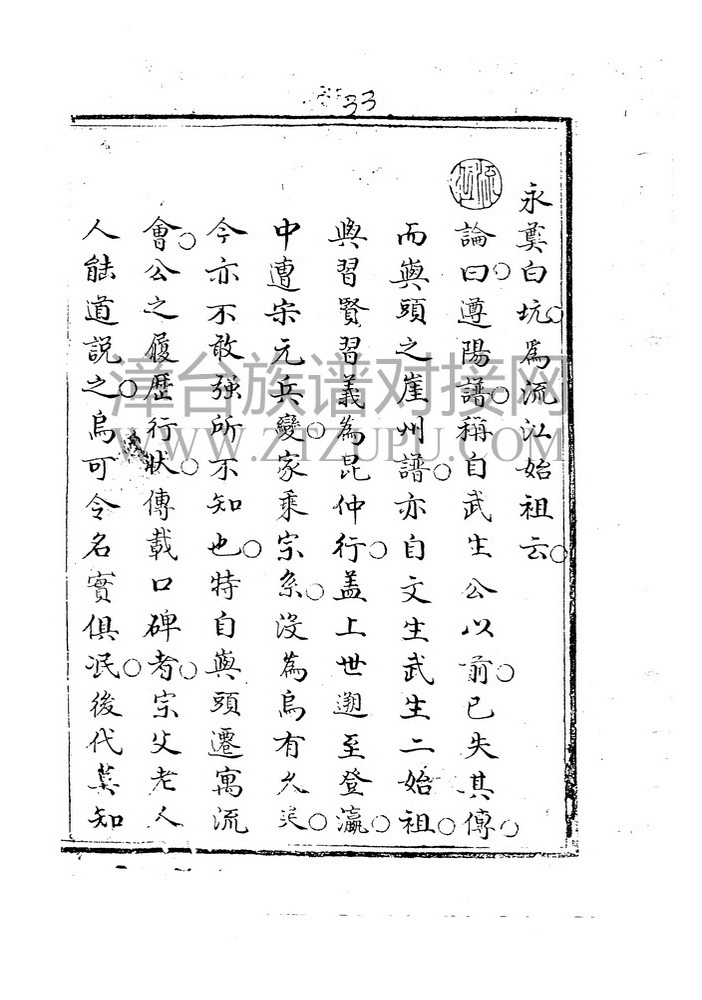 33
永奠白坑。為流江始祖云。
論曰。遵陽譜。稱自武生公以前。已失其傳。
而與頭之崖州譜。亦自文生武生二始祖。
與習賢習義為昆仲行。蓋上世遡至登瀛。
中遭宋元兵變。家乘宗系。沒為烏有久矣。
今亦不敢强所不知也。特自與頭遷寓流
會。公之履歷行狀。傳載口碑者。宗父老人
人能道說之。烏可令名實俱泯。後代莫知
漳台族谱对接网
WWW.ZTZUPU.COM